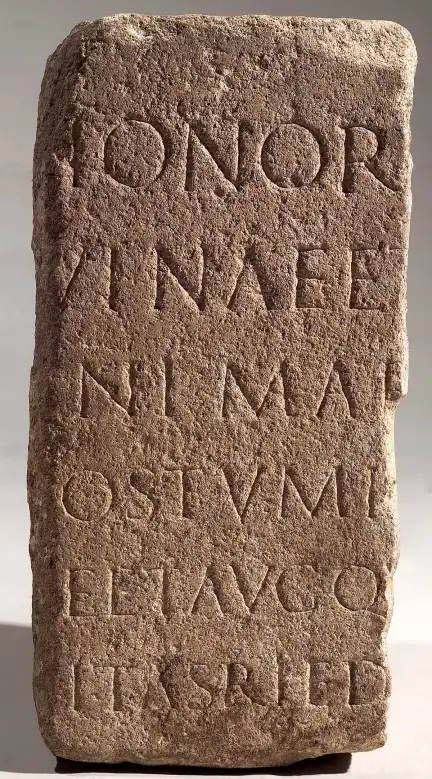 HONOR
VINAEE
NI MAR
OSTVMI
ELIAVGQ
ITASRIED